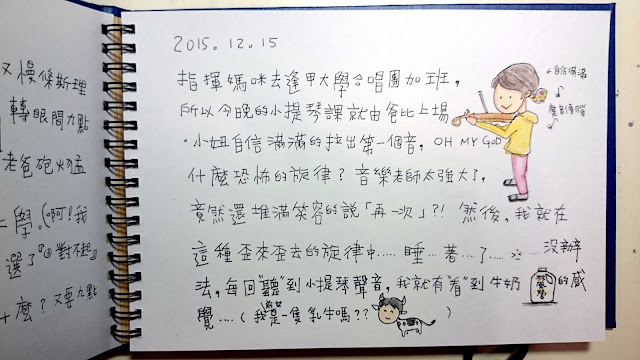 又慢條斯理
轉眼間九點
老爸砲火猛
學。(啊!我
選了『對不起』
麼?又要九點
2015.12.15
指揮媽咪去逢甲大學合唱團加班,
所以今晚的小提琴課就由爸比上場
。小妞自信滿滿的拉出第一個音, OH MY GOD
什麼恐怖的旋律?音樂老師太強大了,
竟然還堆滿笑容的說「再一次」?! 然後,我就在
這種歪來歪去的旋律中.....睡...著...了.........沒辦
法,每回"聽"到小提琴聲音,我就有"看"到牛奶 的感
覺....(我是一隻乳牛嗎?? )
←自信滿滿
魔音傳腦